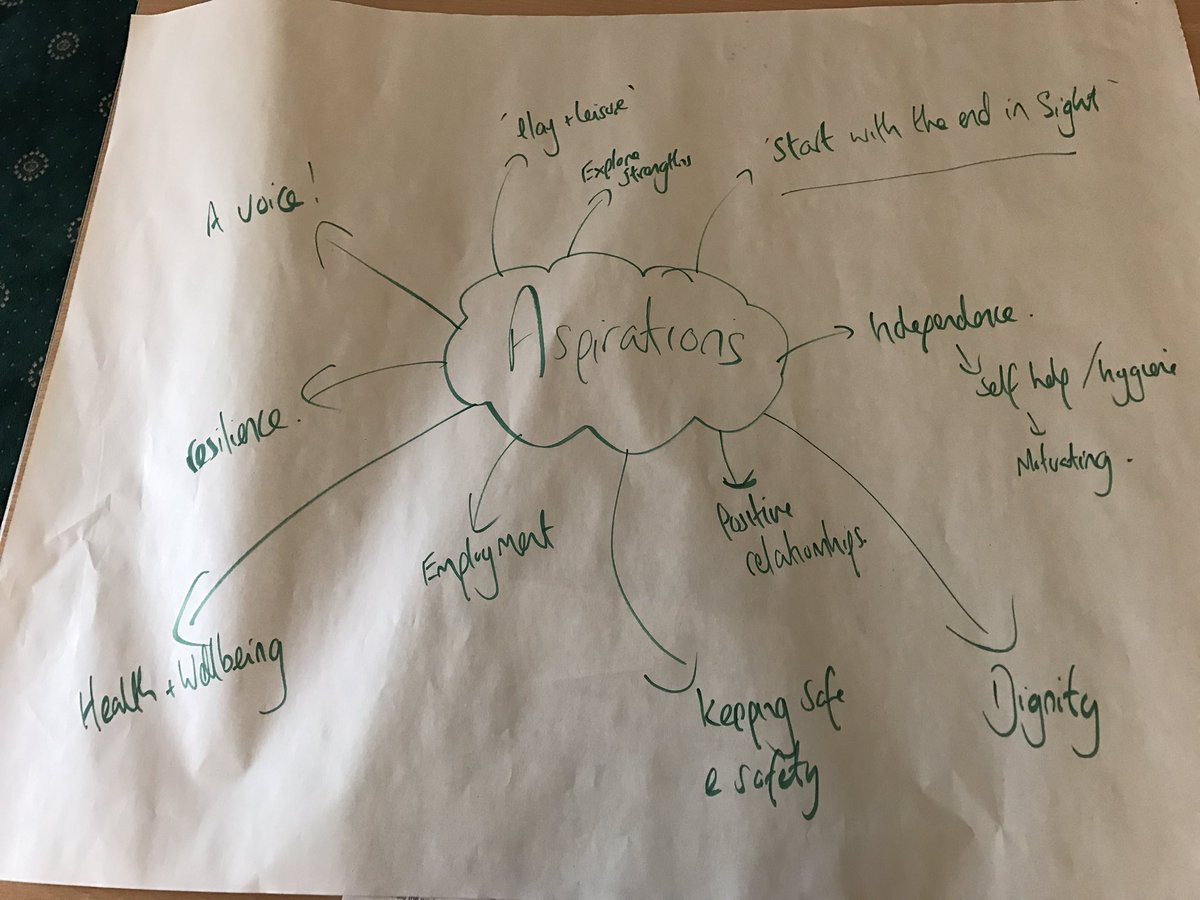 'Play + Leisure'
Explore
Strengths
'Start with the end in Sight'
A voice!
Aspirations
Independence.
Self help / hygiene
resilience.
Positive
relationships.
Employment
Health + Wellbeing
Keeping Safe
e safety
Dignity